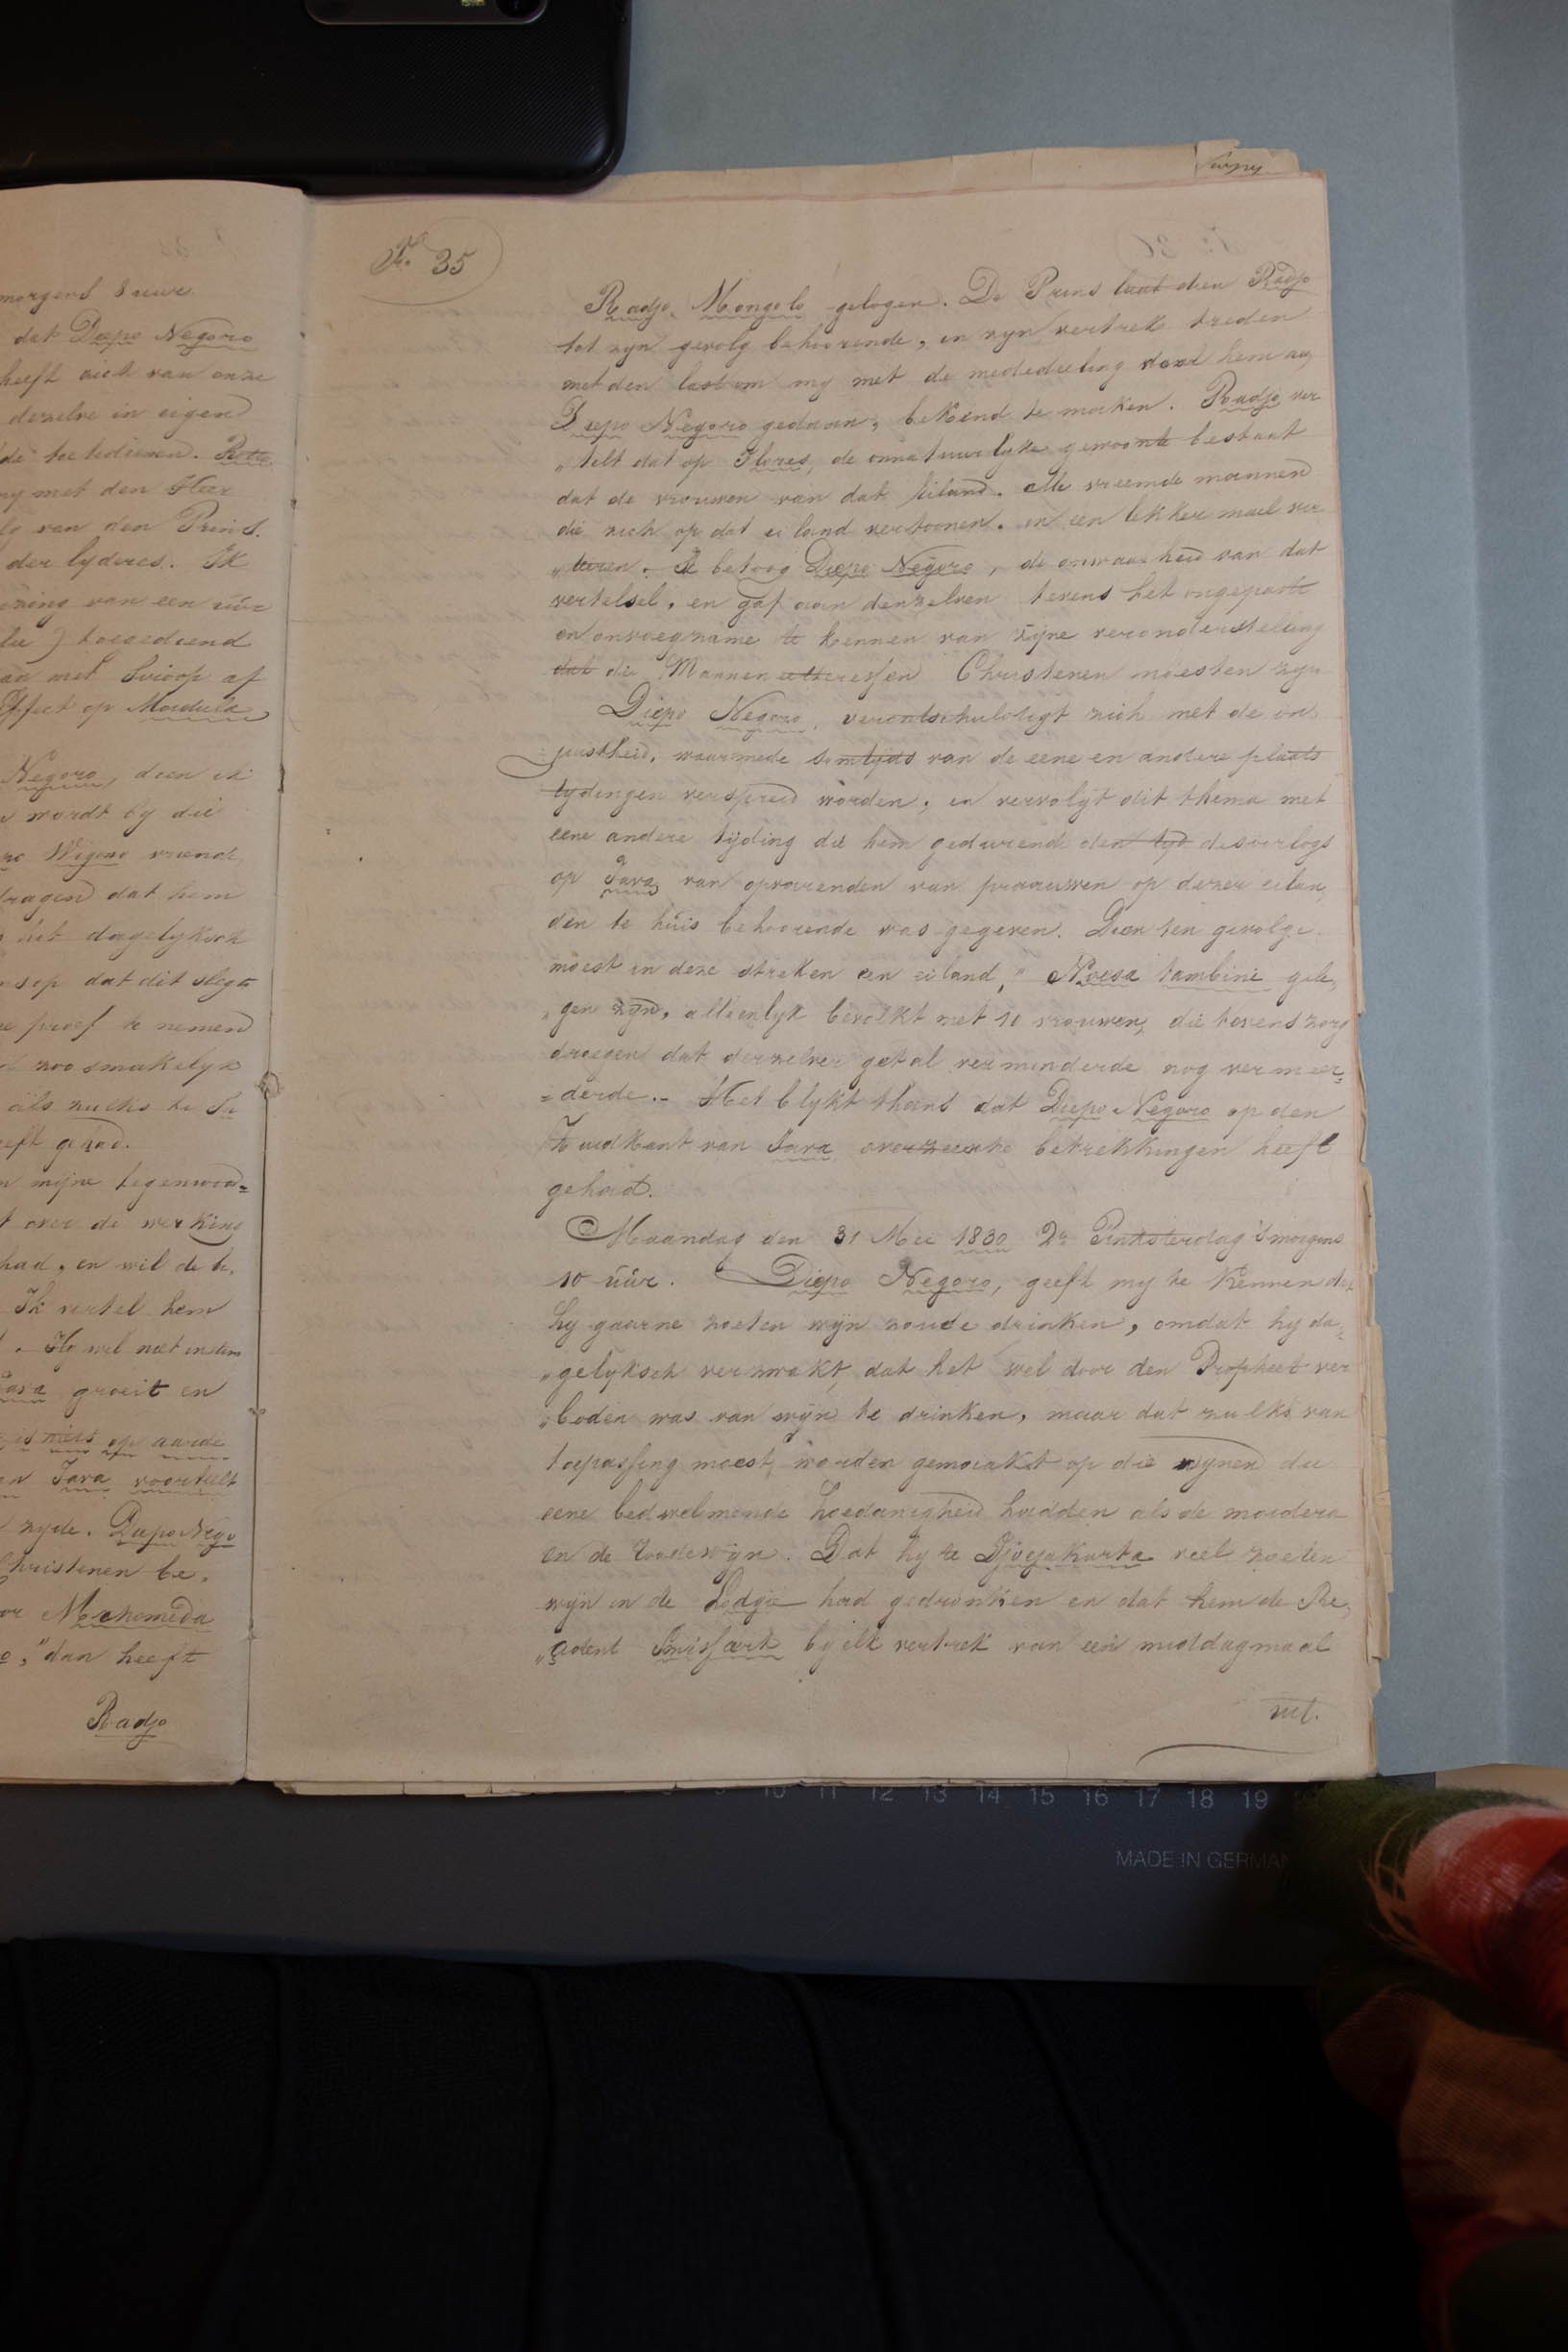 morgens 8 uur.
dat Diepo Negoro
heeft niet van onze
dezelve in eigend
de toe te dienen. Rotte
my met den Heer
van den Prins.
der lyderes. Ik
van een uur
toegediend
met Siroop af
Effect op Maduela
Negoro, dien ik
wordt by die
Negoro vriende
dragen dat hem
het dagelyksch
op dat dit slegts
proef te nemen
zoo smakelyk
als zulks te
heeft gehad.
mijne tegenwoor=
over de werking
had, en wil de be,
Ik vertel hem
Hy wil niet
Java groeit en
is niets op aarde
Java voortteelt
zyde. Diepo Nego
Christenen be,
Mochomeda
"dan heeft
Radjo
Fo. 35
Radjo Mongolo gelogen. De Prins laat dien Radjo
tot zyn gevolg behoorende, in zyn vertrek treden
met den last om my met de mededeeling door hem aan
Diepo Negoro gedaan, bekend te maken. Radjo ver
"telt dat op Flores, de onnatuurlyke gewoonte bestaat
dat de vrouwen van dat Eiland, alle vreemde mannen
die zich op dat eiland vertoonen, in een lekker maal ver
"teren. Ik betoog Diepo Negoro, de onwaarheid van dat
vertelsel, en gaf aan denzelven tevens het ongepaste
en onvoegzame te kennen van zijne veronderstelling
dat die Mannen etteressen Christenen moesten zyn
Diepo Negoro, verontschuldigt zich met de on
juistheid, waarmede somtyds van de eene en andere plaats
tydingen verspreid worden, en vervolgt dit thema met
eene andere tijding die hem gedurende den tyd des oorlogs
op Java, van opvarenden van praauwen op dezer eilan,
den te huis behoorende was gegeven. Dien ten gevolge
moest in deze streken een eiland, "Noesa tambini gele,
"gen zyn, alleenlyk bevolkt met 10 vrouwen, die tevens zorg
droegen dat derzelver getal verminderde nog vermeer=
=derde.- Het blykt thans dat Diepo Negoro op den
Zuidkant van Java overzeesche betrekkingen heeft
gehad.
Maandag den 31 Mei 1830 2e Pinksterdag 's morgens
10 uur. Diepo Negoro, geeft my te kennen dat
hy gaarne zoeten wijn zoude drinken, omdat hy da,
"gelyksch verzwakt, dat het wel door den Propheet ver
"boden was van wijn te drinken, maar dat zulks van
toepassing moest worden gemaakt op die wijnen die
eene bedwelmende hoedanigheid hadden als de madera
en de roodewijn. Dat hy te Djocjakarta veel zoeten
wijn in de Lodgie had gedronken en dat hem de Re,
"sident Smissaert by elk vertrek van een middagmaal
uit.
10 11 12 13 14 15 16 17 18 19
MADE IN GERMAN